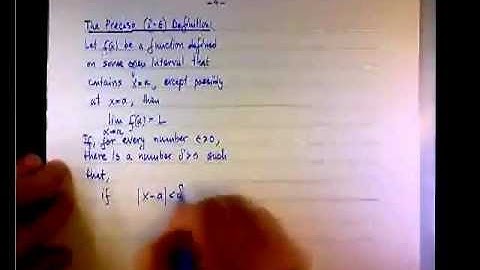 -4-
The Precise (δ-ε) Definition:
Let f(x) be a function defined
on some open interval that
contains x=a, except possibly
at x=a, then
lim f(x) = L
x→a
If, for every number ε>0,
there is a number δ>0 such
that,
if |x-a|<δ